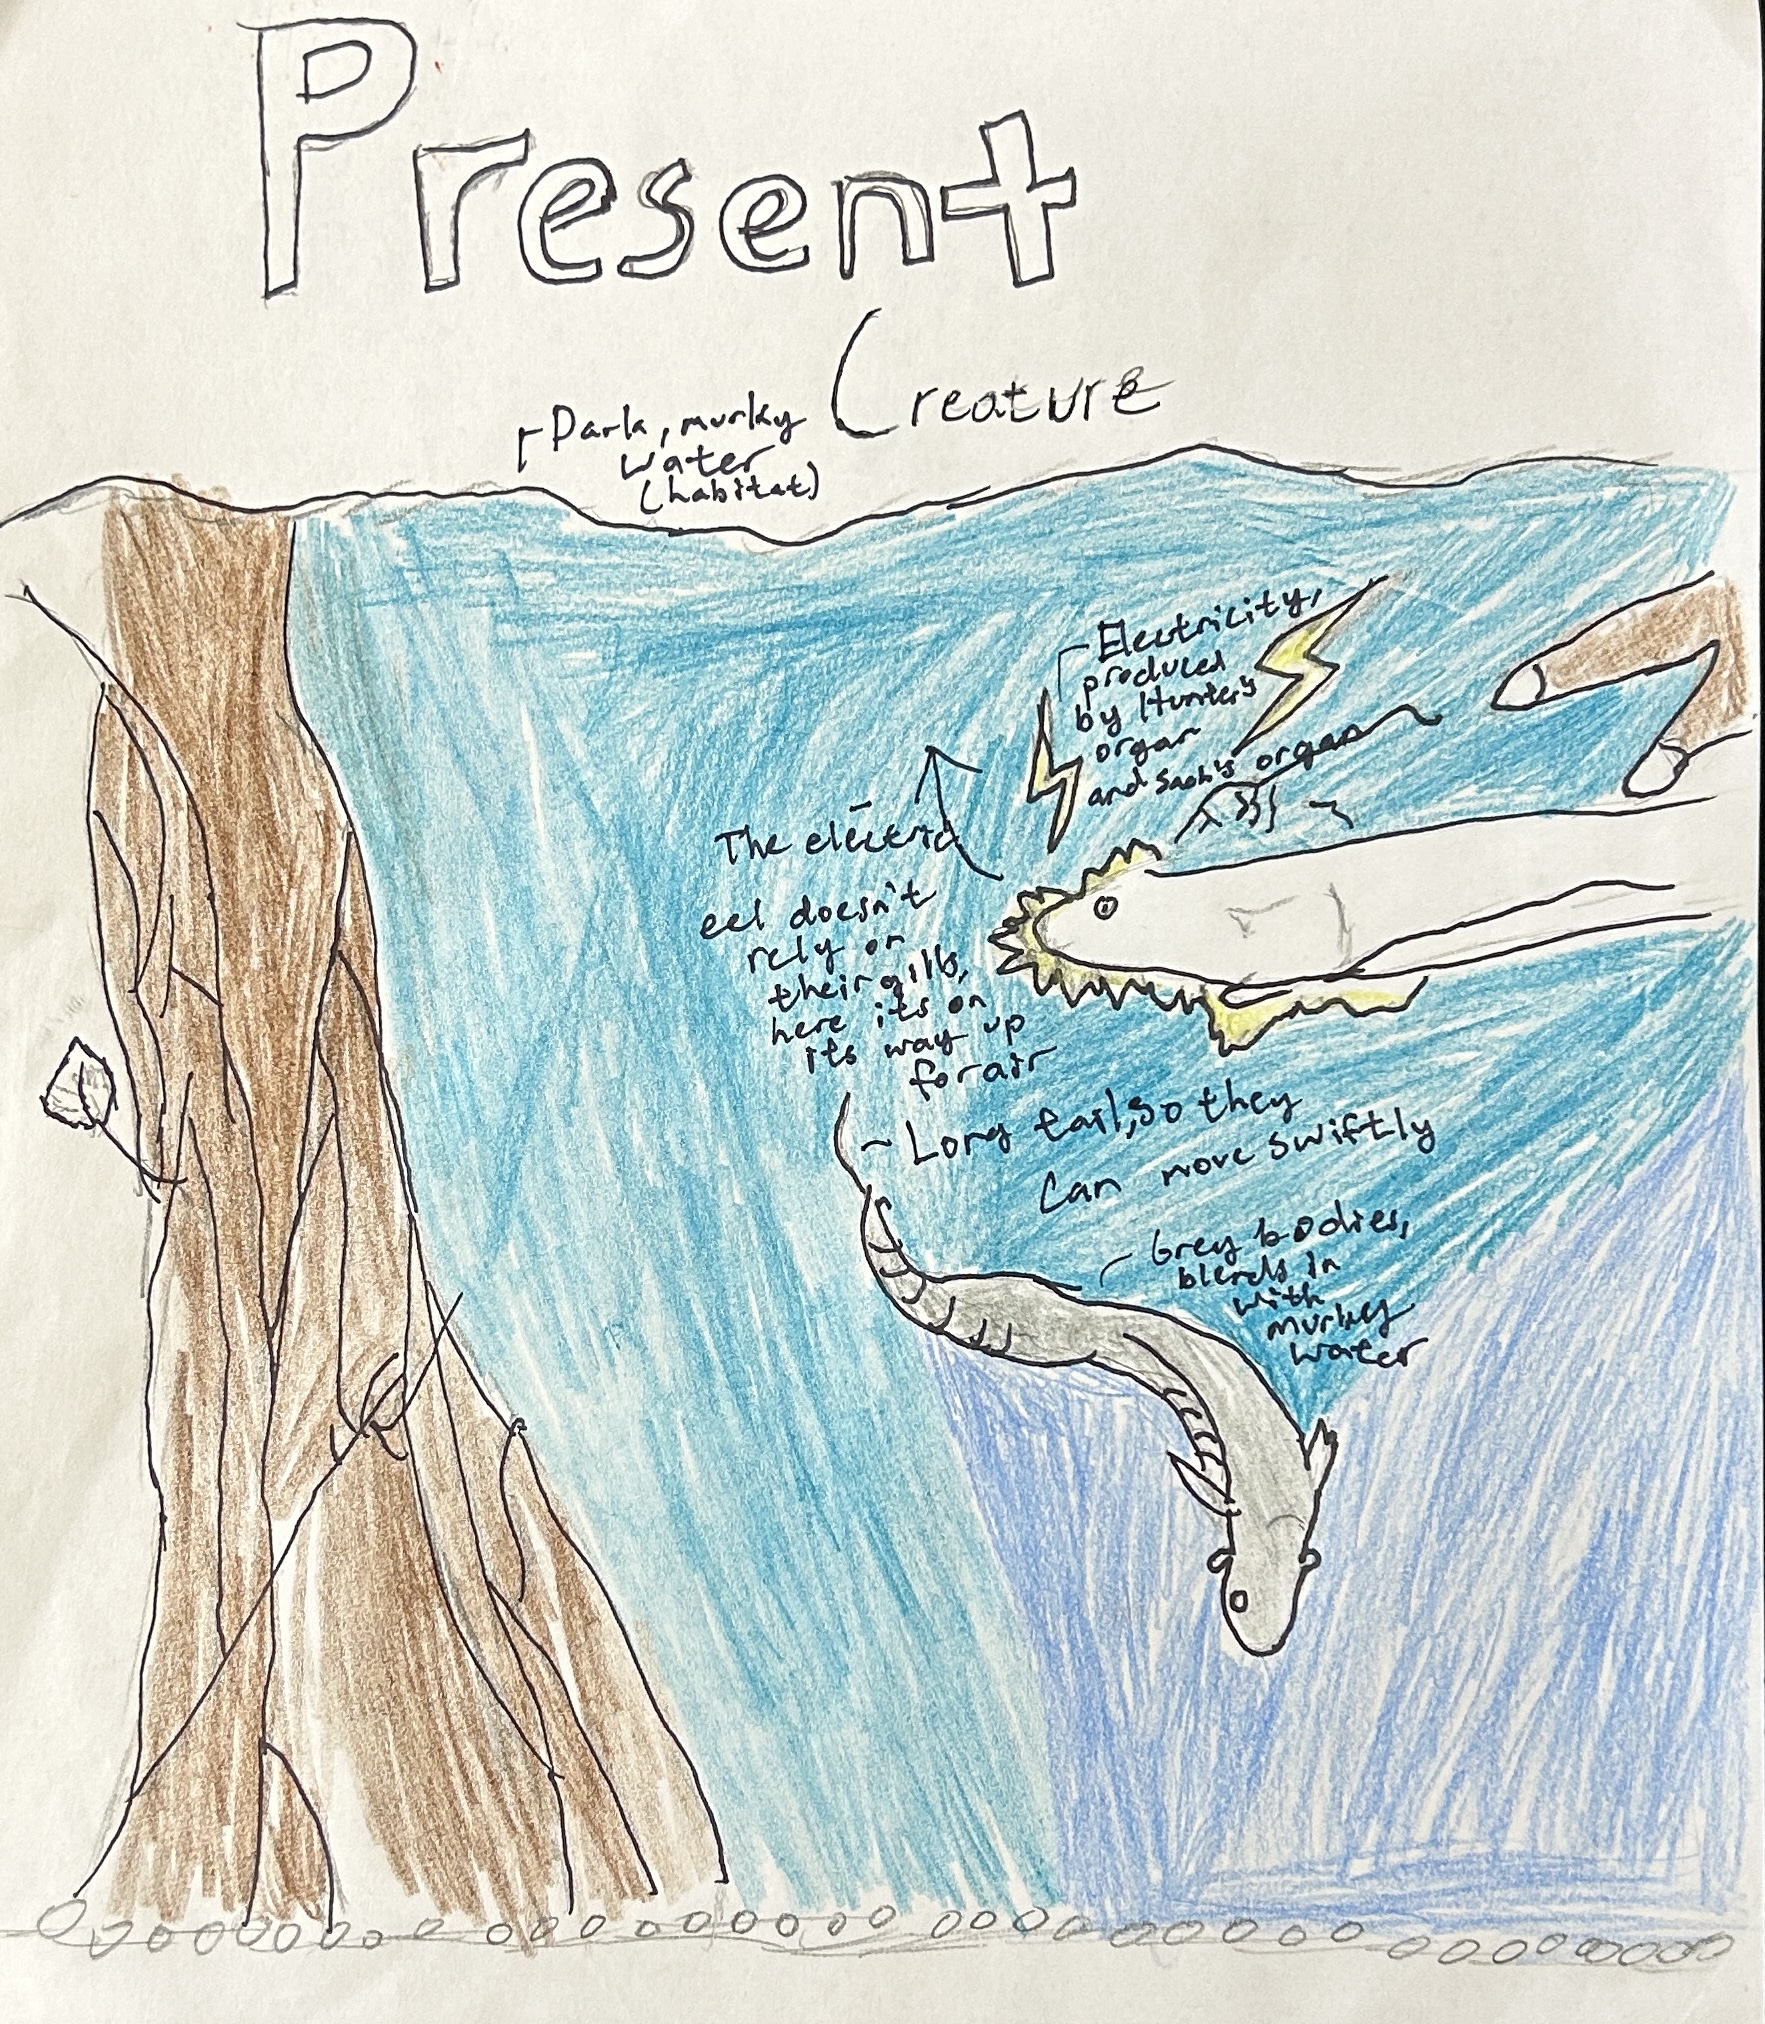 Present
Creature
Dark, murky
water
(habitat)
Electricity,
produced
by Hunter's
organ
and Sach's organ
The electric
eel doesn't
rely on
their gills,
here its on
its way up
for air
Long tail, so they
can move swiftly
Grey bodies,
blends in
with
murky
water